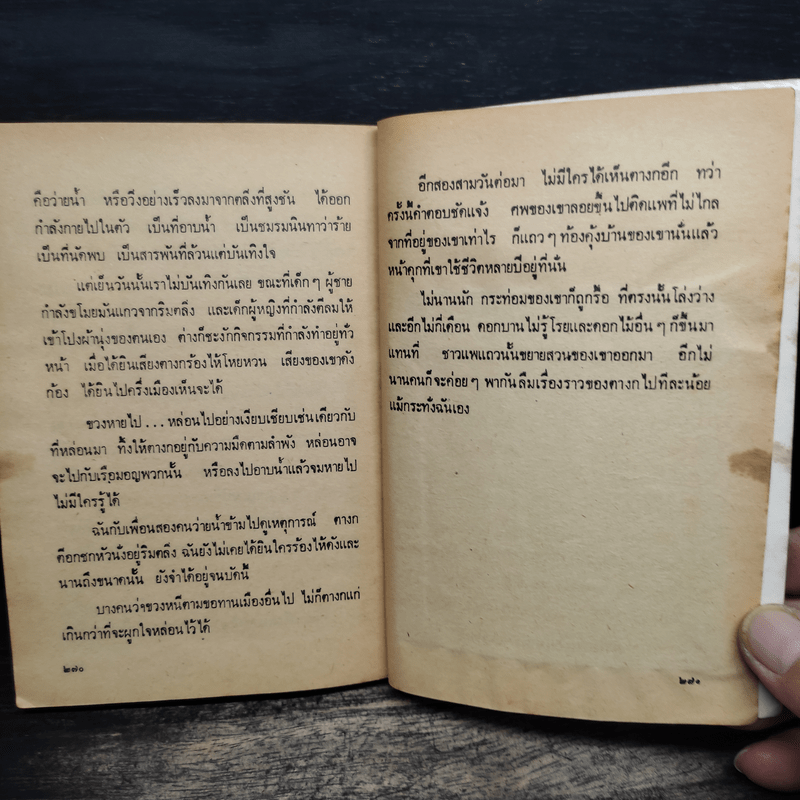 คือว่ายน้ำ หรือวิ่งอย่างเร็วลงมาจากตลิ่งที่สูงชัน ได้ออก
กำลังกายไปในตัว เป็นที่อาบน้ำ เป็นชมรมนินทาว่าร้าย
เป็นที่นัดพบ เป็นสารพันที่ล้วนแต่บันเทิงใจ
แต่เย็นวันนั้นเราไม่บันเทิงกันเลย ขณะที่เด็กๆ ผู้ชาย
กำลังขโมยมันแกวจากริมตลิ่ง และเด็กผู้หญิงที่กำลังตีลมให้
เข้าโปงผ้านุ่งของตนเอง ต่างก็ชะงักกิจกรรมที่กำลังทำอยู่ทั่ว
หน้า เมื่อได้ยินเสียงตางกร้องไห้โหยหวน เสียงของเขาดัง
ก้อง ได้ยินไปครึ่งเมืองเห็นจะได้
ขวงหายไป ... หล่อนไปอย่างเงียบเชียบเช่นเดียวกับ
ที่หล่อนมา ทิ้งให้ตางกอยู่กับความมืดตามลำพัง หล่อนอาจ
จะไปกับเรือมอญพวกนั้น หรือลงไปอาบน้ำแล้วจมหายไป
ไม่มีใครรู้ได้
ฉันกับเพื่อนสองคนว่ายน้ำข้ามไปดูเหตุการณ์ ตางก
ตีอกชกหัวนั่งอยู่ริมตลิ่ง ฉันยังไม่เคยได้ยินใครร้องไห้ดังและ
นานถึงขนาดนั้น ยังจำได้อยู่จนบัดนี้
บางคนว่าขวงหนีตามขอทานเมืองอื่นไป ไม่ก็ตางกแก่
เกินกว่าที่จะผูกใจหล่อนไว้ได้
๒๗๐
อีกสองสามวันต่อมา ไม่มีใครได้เห็นตางกอีก ทว่า
ครั้งนี้คำตอบชัดแจ้ง ศพของเขาลอยขึ้นไปติดแพที่ไม่ไกล
จากที่อยู่ของเขาเท่าไร ก็แถวๆ ท้องคุ้งบ้านของเขานั่นแล้ว
หน้าคุกที่เขาใช้ชีวิตหลายปีอยู่ที่นั่น
ไม่นานนัก กระท่อมของเขาก็ถูกรื้อ ที่ตรงนั้นโล่งว่าง
และอีกไม่กี่เดือน ดอกบานไม่รู้โรยและดอกไม้อื่นๆ ก็ขึ้นมา
แทนที่ ชาวแพแถวนั้นขยายสวนของเขาออกมา อีกไม่
นานคนก็จะค่อยๆ พากันลืมเรื่องราวของตางกไปทีละน้อย
แม้กระทั่งฉันเอง
๒๗๑